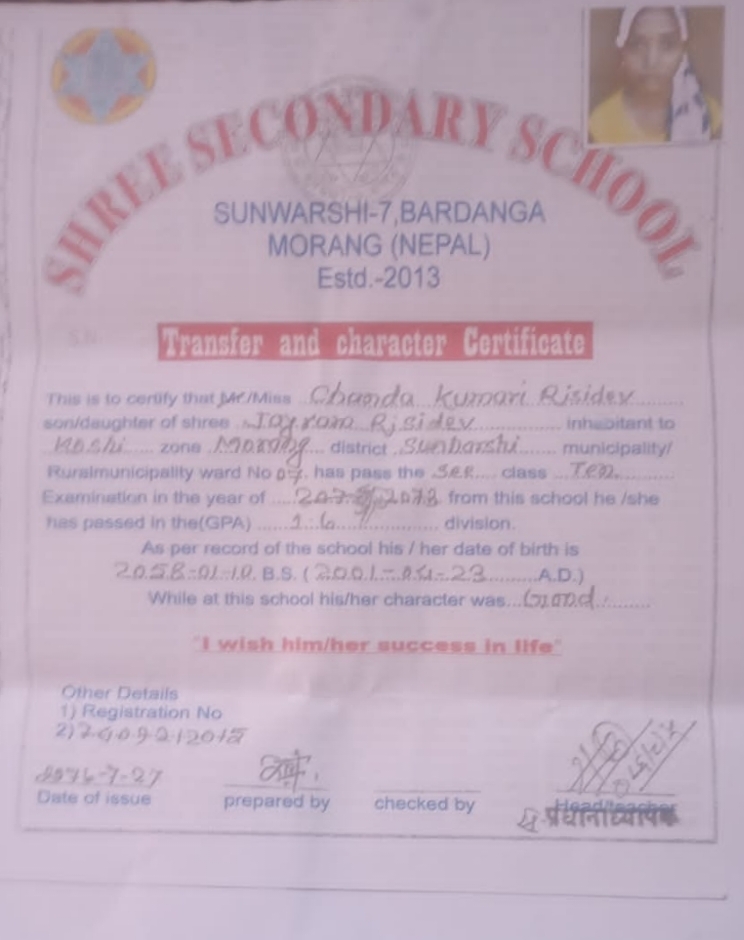 SHREE SECONDARY SCHOOL
SUNWARSHI-7,BARDANGA
MORANG (NEPAL)
Estd.-2013
Transfer and character Certificate
This is to certify that Mr/Miss Chanda Kumari Risidev
son/daughter of shree Jayram Risidev inhabitant to
Koshi zone Morang district Sunbarshi municipality/
Ruralmunicipality ward No 07. has pass the See class Ten
Examination in the year of 2073 from this school he /she
has passed in the(GPA) 1.6 division.
As per record of the school his / her date of birth is
2058-01-10 B.S. (2001-04-23 A.D.)
While at this school his/her character was Good
"I wish him/her success in life"
Other Details
1) Registration No
2)
2076-7-27
Date of issue prepared by checked by Head/teacher
प्रधानाध्यापक